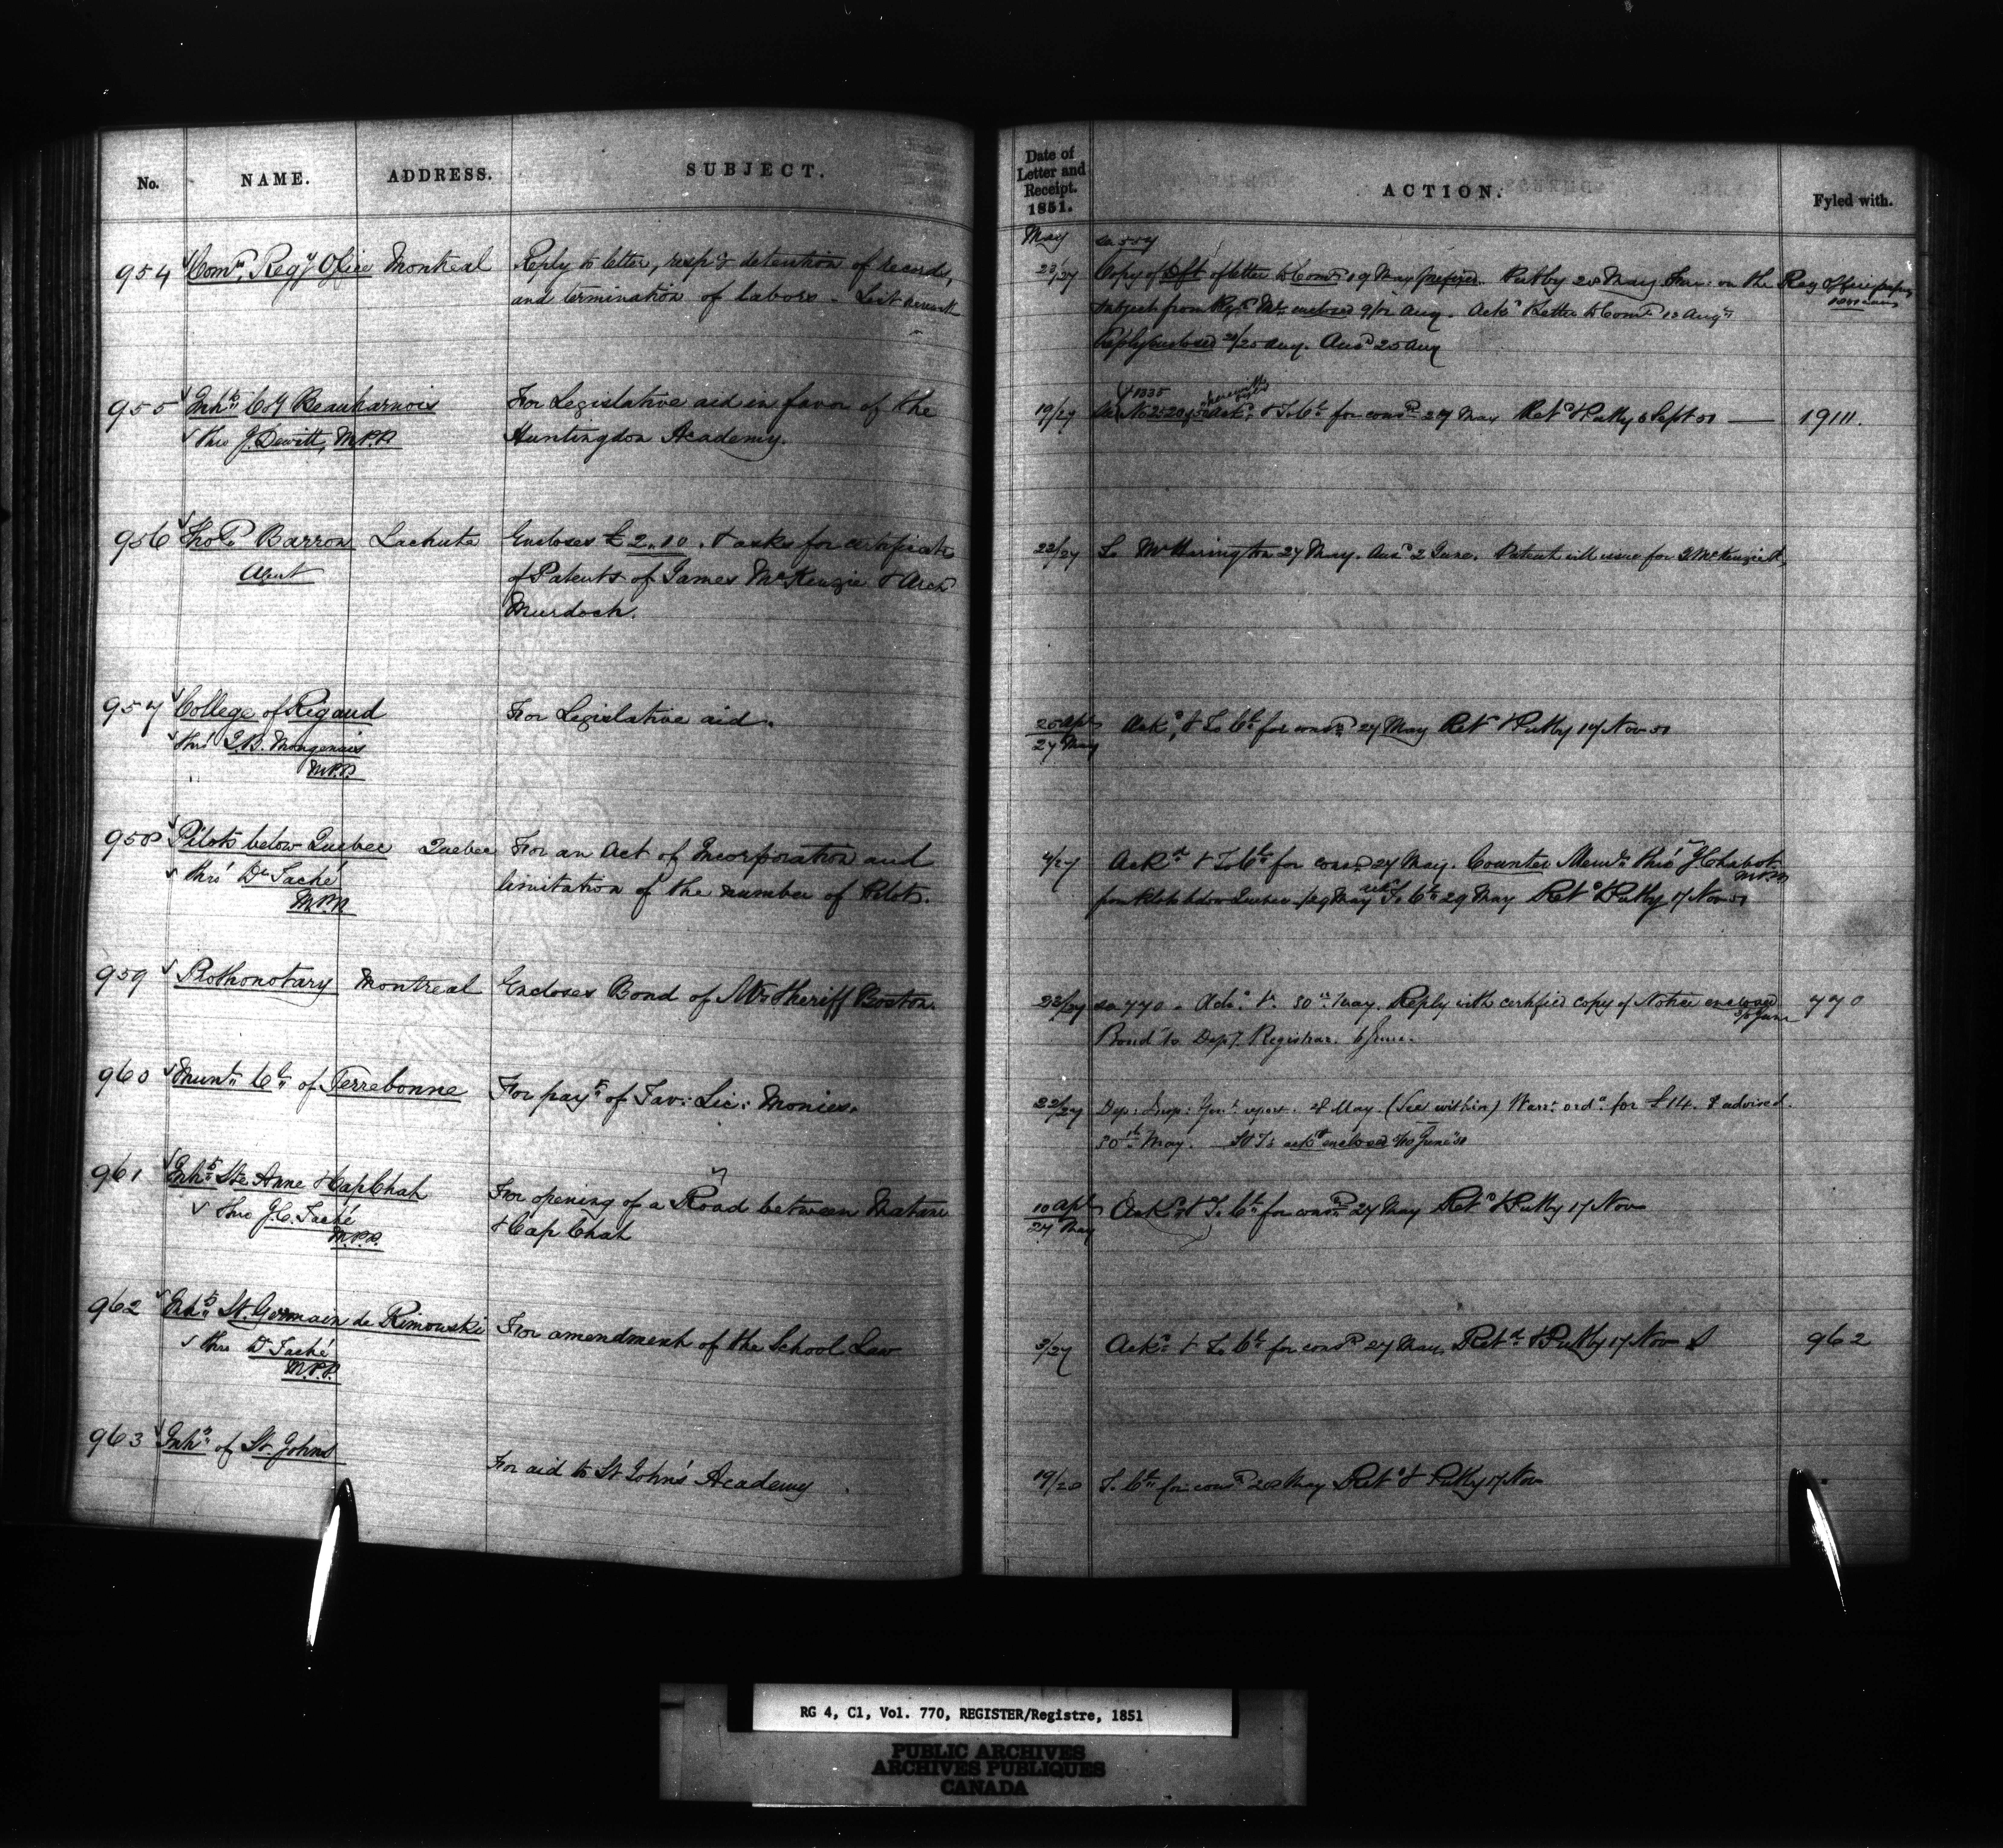 No. NAME. ADDRESS. SUBJECT.
954 Comrs Regy Office Montreal Reply to letter, respg detention of records,
and termination of labors - List
955 Inhts Coy Beauharnois For Legislative aid in favor of the
thro J. Dewitt, M.P.P. Huntingdon Academy.
956 Thos Barron Lachute Encloses £2.10. & asks for certificate
Agent of Patents of James McKenzie & Arch
Murdoch.
957 College of Rigaud For Legislative aid.
thro' J.B. Mongenais
M.P.P.
958 Pilots below Quebec Quebec For an Act of Incorporation and
thro' Dr Taché limitation of the number of Pilots.
M.P.P.
959 Prothonotary Montreal Encloses Bond of Mr Sheriff Boston.
960 Munl Cl of Terrebonne For payt of Tav: Lic: Monies.
961 Inhts Ste Anne & Cap Chat For opening of a Road between Matane
thro J.C. Taché & Cap Chat
M.P.P.
962 Inhts St. Germain de Rimouski For amendment of the School Law
thro Dr Taché
M.P.P.
963 Inhts of St. Johns For aid to St Johns' Academy
Date of
Letter and
Receipt.
1851.
ACTION. Fyled with.
May
23/27 Copy of Dft of letter to Comrs 19 May Putby 28 May on the Reg Office
subject from enclosed Aug. Ackd Letter to Comrs Aug
Reply enclosed Aug. Ansd 25 Aug
19/27 Ackd & To Cl for consn 27 May Retd & Putby 6 Sept 51 — 19111.
22/27 To Mr Harington 27 May. Ansd 2 June. Patent will issue for J. McKenzie
25 Apl
27 May
Ackd & To Cl for consn 27 May Retd & Putby 17 Nov 51
4/27 Ackd & To Cl for consn 27 May. Counter Meml thro' J Chabot
M.P.P.
from Pilots below Quebec /29 May To Cl 29 May Retd & Putby 17 Nov 51
23/27 so 770 - Ackd 30th May. Reply with certified copy of Notice enclosed 770
June
Bond to Depy Registrar. 6 June.
22/27 Dep: Insp: Genl report. 28 May. (See within) Warrt ordd for £14. & advised.
30th May. enclosed June
10 Apl
27 May
Ackd & To Cl for consn 27 May Retd & Putby 17 Nov
3/27 Ackd & To Cl for consn 27 May Retd & Putby 17 Nov 962
19/28 To Cl for consn 28 May Retd & Putby 17 Nov
RG 4, C1, Vol. 770, REGISTER/Registre, 1851
PUBLIC ARCHIVES
ARCHIVES PUBLIQUES
CANADA